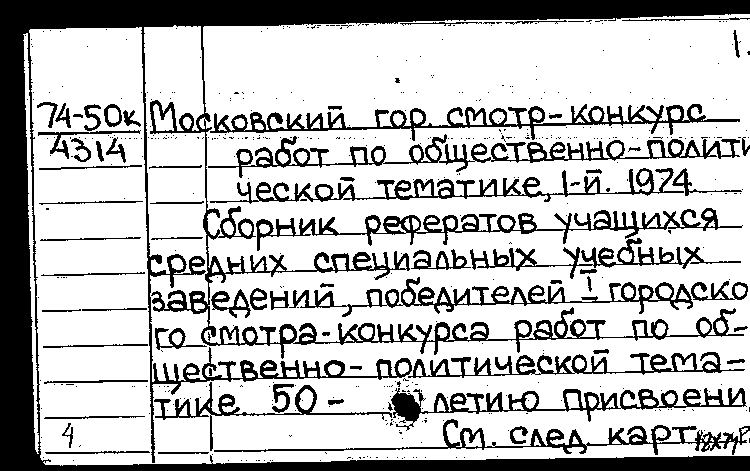 1.
74-50к Московский гор. смотр-конкурс
4314 работ по общественно-полити
ческой тематике, 1-й. 1974.
Сборник рефератов учащихся
средних специальных учебных
заведений, победителей I городско
го смотра-конкурса работ по об-
щественно-политической тема-
тике. 50- летию присвоени
4 См. след. карт.